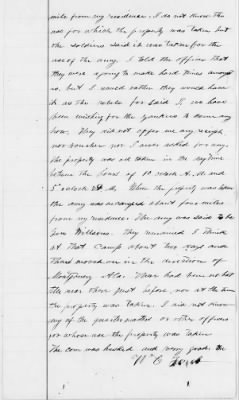 mile from my residence. I do not know the
use for which the property was taken but
the soldiers said it was taken for the
use of the army. I told the officer that
they were going to make hard times amongst
us, but I would rather they would have
it as the rebels for said I, we have
been wishing for the yankees to come any
how. They did not offer me any receipt
nor voucher nor I never asked for any.
The property was all taken in the daytime
between the hours of 10 o'clock A.M. and
5 o'clock P.M. When the property was taken
the army was encamped about four miles
from my residence. The army was said to be
Gen Wilsons. They remained I think
at that Camp about two days and
then moved on in the direction of
Montgomery Ala. There had been no bat
tle near there just before nor at the time
the property was taken. I did not know
any of the quartermasters or other officers
for whose use the property was taken
The corn was husked and very good. The
Wm C